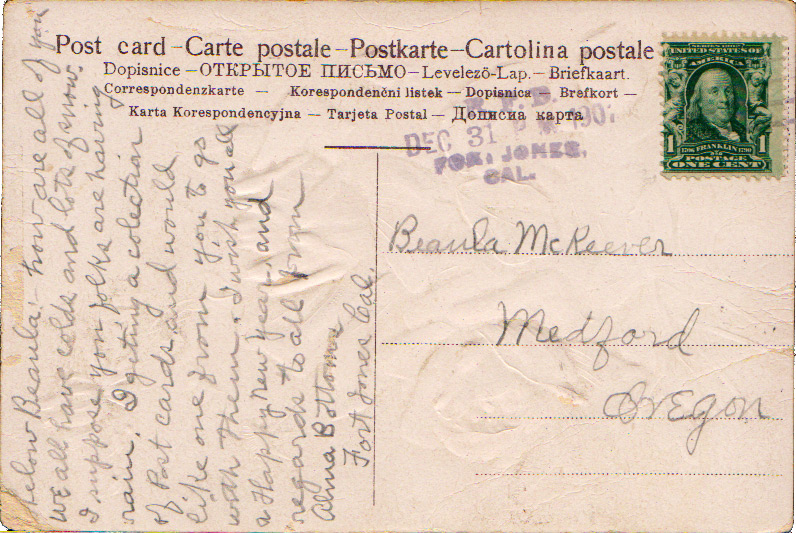 Post card – Carte postale – Postkarte – Cartolina postale
Dopisnice – ОТКРЫТОЕ ПИСЬМО – Levelező-Lap. – Briefkaart.
Correspondenzkarte – Korespondenční listek – Dopisnica – Brefkort –
Karta Korespondencyjna – Tarjeta Postal – Дописна карта
R. F. D.
DEC 31 190
FORT JONES,
CAL.
SERIES 1902
UNITED STATES OF
AMERICA
1 1790 FRANKLIN 1790 1
POSTAGE
ONE CENT
Hellow Beaula:- how are all of you
we all have colds and lots of snow.
I suppose you folks are having
rain. I geting a colection
of Post cards and would
like one from you to go
with them. I wish you all
a Happy New Year and
regards to all from
Alma Bottoms
Fort Jones Cal.
Beaula McKeever
Medford
Oregon